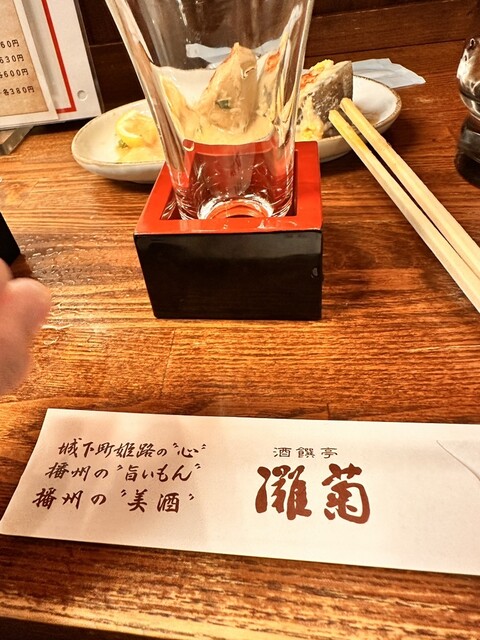 60円
630円
600円
380円
城下町姫路の〝心〟
播州の〝旨いもん〟
播州の〝美酒〟
酒饌亭
灘菊